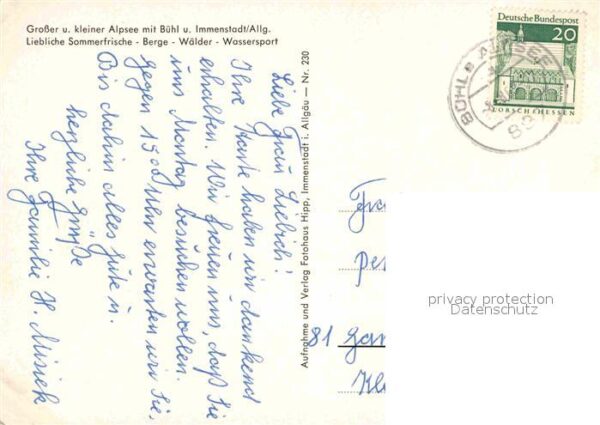 Großer u. kleiner Alpsee mit Bühl u. Immenstadt/Allg.
Liebliche Sommerfrische - Berge - Wälder - Wassersport
Liebe Frau Liebich!
Ihre Karte haben wir dankend
erhalten. Wir freuen uns, daß Sie
uns Montag besuchen wollen.
Gegen 15 00 Uhr erwarten wir Sie.
Bis dahin alles Gute u.
herzliche Grüße
Ihre Familie H.
Aufnahme und Verlag Fotohaus Hipp, Immenstadt i. Allgäu — Nr. 230
Deutsche Bundespost
20
LORSCH/HESSEN
BÜHL a ALPSEE
Fra
Pe
81 Ga
Kl
privacy protection
Datenschutz